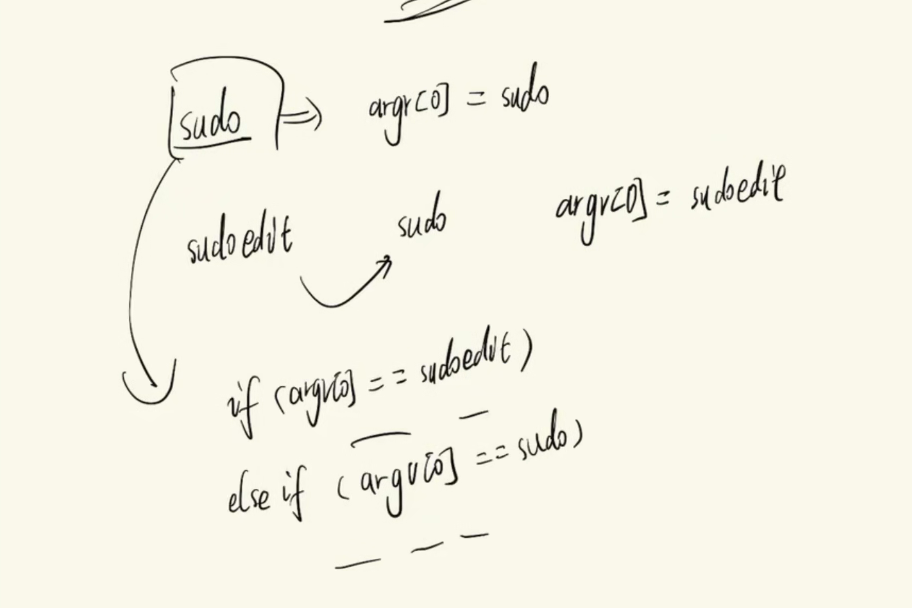 sudo => argv[0] = sudo
sudoedit sudo argv[0] = sudoedit
if (argv[0] == sudoedit)
else if (argv[0] == sudo)